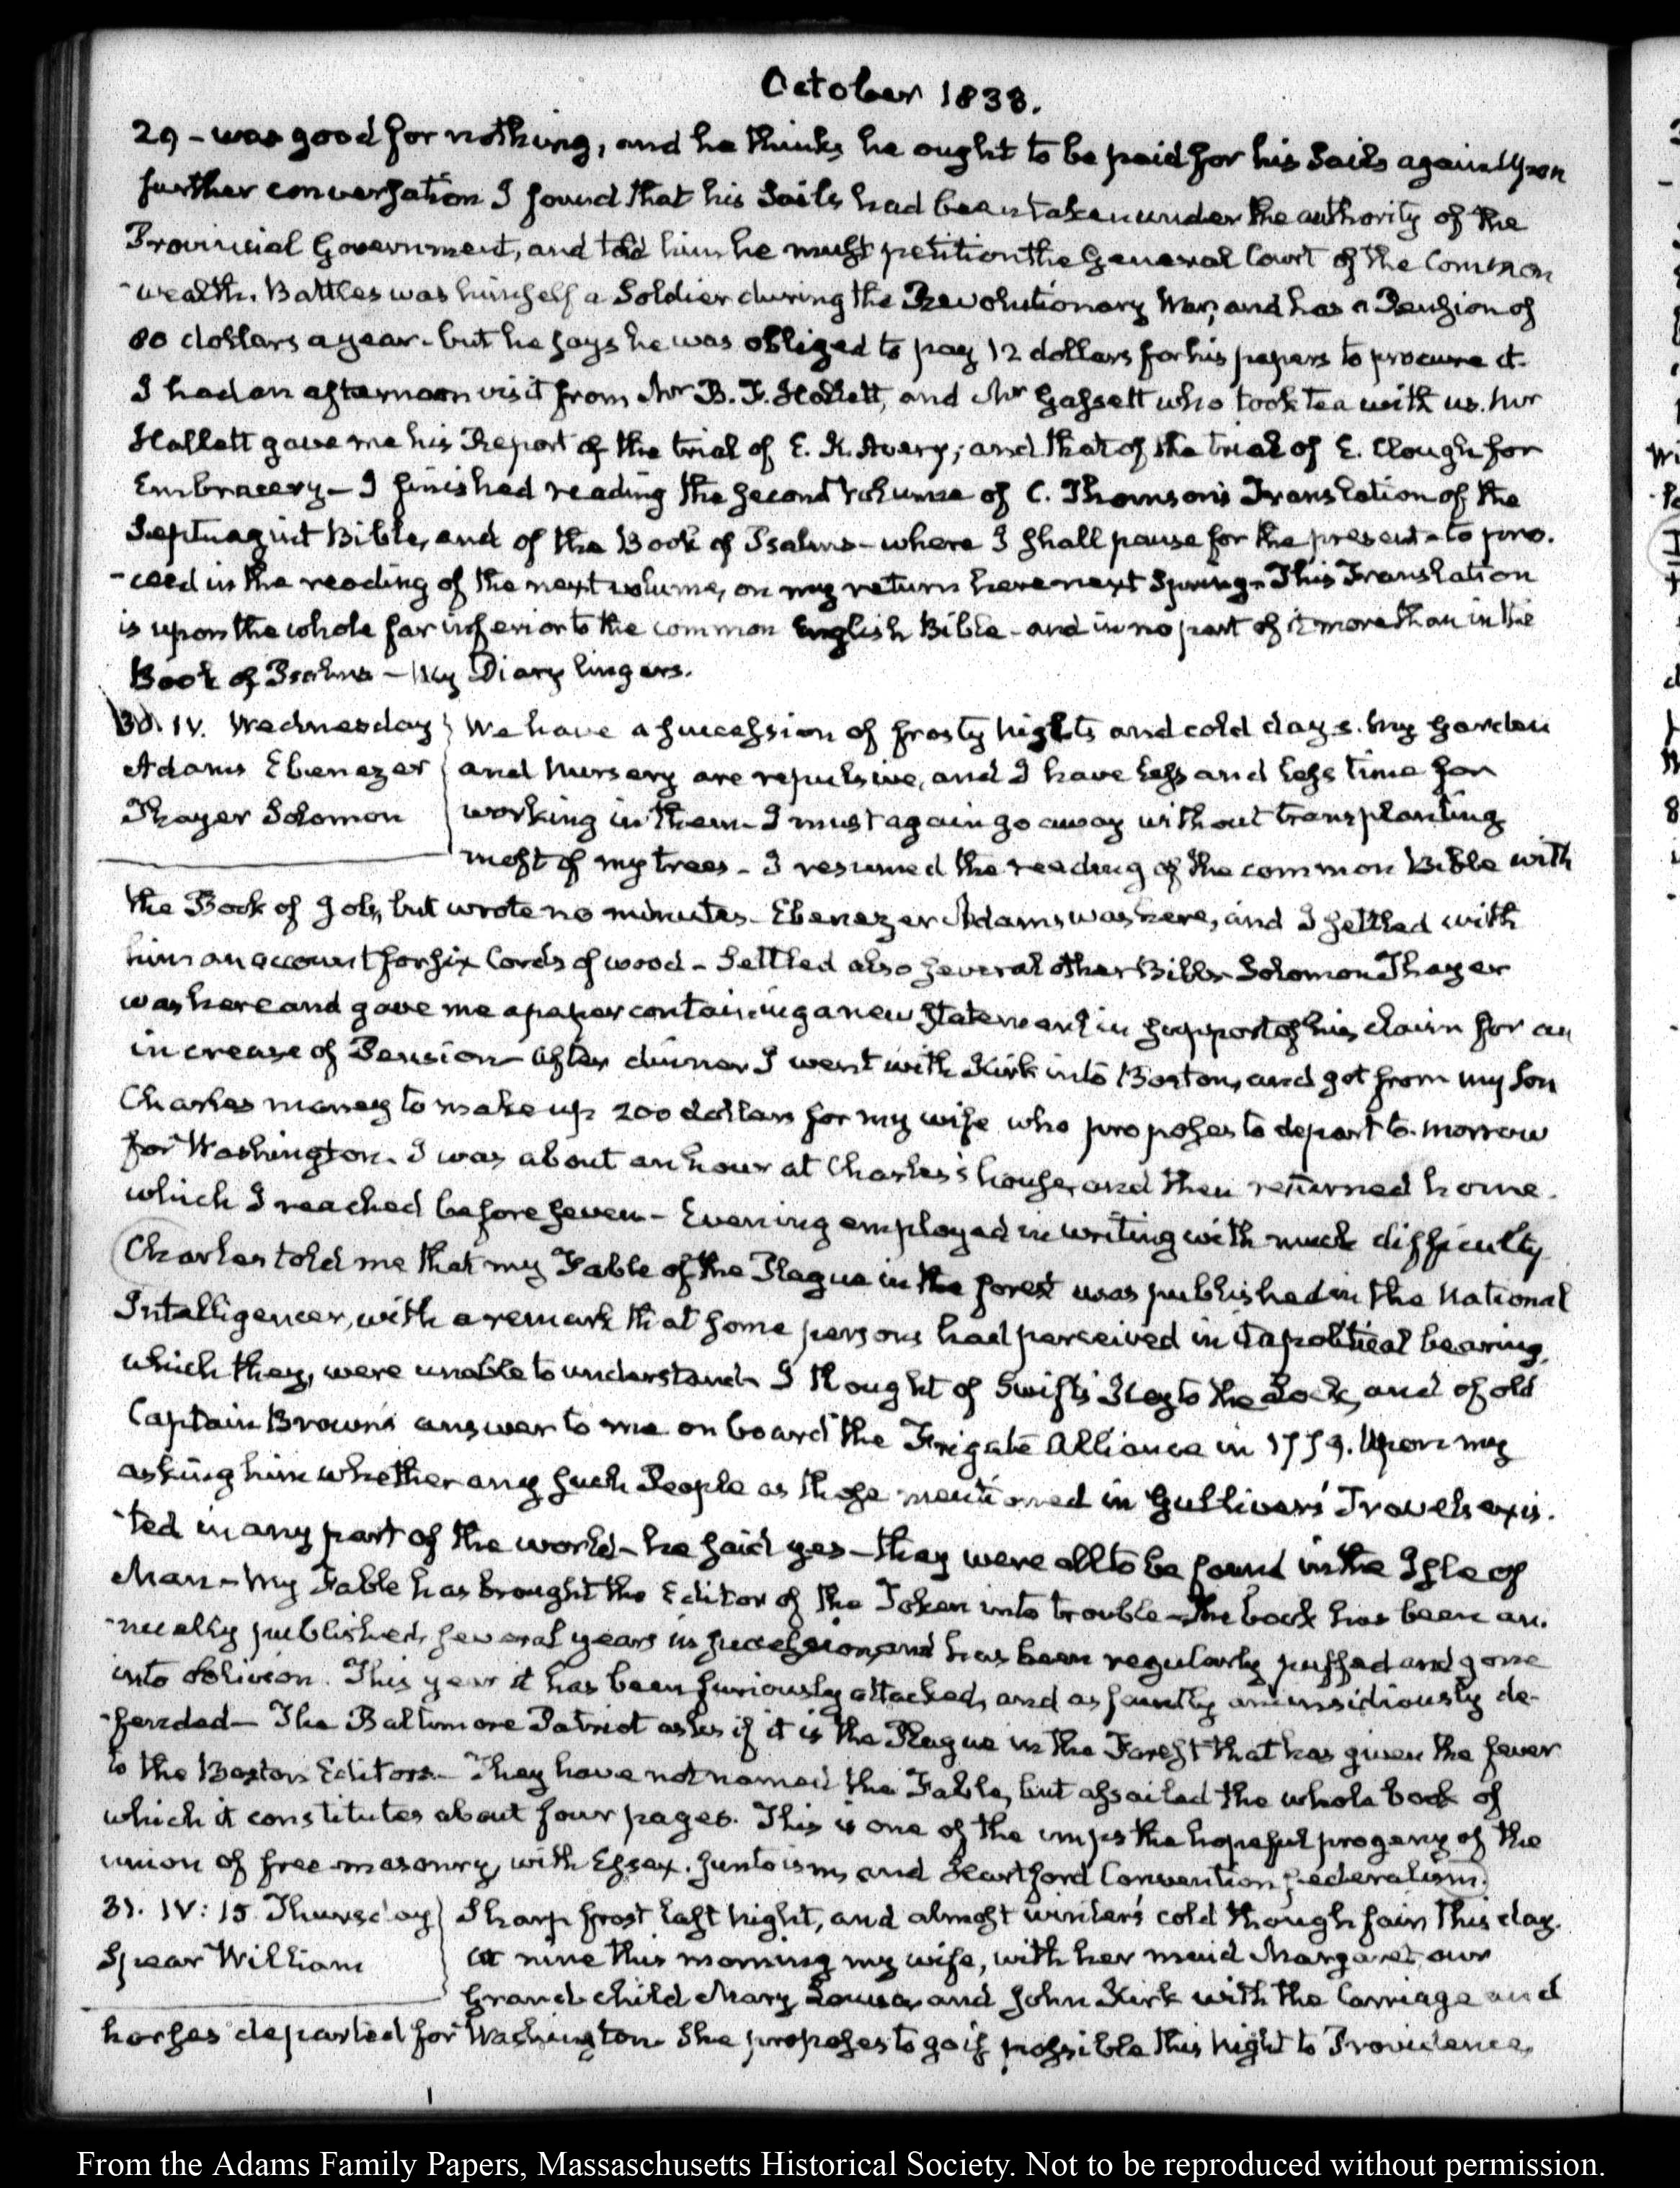 October 1833.
29 – was good for nothing, and he thinks he ought to be paid for his Sails again. Upon
further conversation I found that his Sails had been taken under the authority of the
Provincial Government, and told him he must petition the General Court of the Common
-wealth. Battles was himself a Soldier during the Revolutionary War, and has a Pension of
80 dollars a year – but he says he was obliged to pay 12 dollars for his papers to procure it.
I had an afternoon visit from Mr B. F. Hallett, and Mr Gassett who took tea with us. Mr
Hallett gave me his Report of the trial of E. K. Avery; and that of the trial of E. Clough for
Embracery – I finished reading the second volume of C. Thomson's Translation of the
Septuagint Bible, and of the Book of Psalms – where I shall pause for the present – to pro-
-ceed in the reading of the next volume, on my return here next Spring – This Translation
is upon the whole far inferior to the common English Bible – and in no part of it more than in the
Book of Psalms – My Diary lingers.
30. IV. Wednesday } We have a succession of frosty nights and cold days. My garden
Adams Ebenezer } and Nursery are repulsive, and I have less and less time for
Thayer Solomon } working in them – I must again go away without transplanting
most of my trees – I resumed the reading of the common Bible with
the Book of Job, but wrote no minutes – Ebenezer Adams was here, and I settled with
him an account for six Cords of wood – Settled also several other Bills – Solomon Thayer
was here and gave me a paper containing a new statement in support of his claim for an
increase of Pension – After dinner I went with Kirk into Boston, and got from my Son
Charles money to make up 200 dollars for my wife who proposes to depart to-morrow
for Washington. I was about an hour at Charles's house, and then returned home.
which I reached before seven – Evening employed in writing with much difficulty
Charles told me that my Fable of the Plague in the forest was published in the National
Intelligencer, with a remark that some persons had perceived in it a political bearing,
which they, were unable to understand – I thought of Swift's Key to the Lock, and of old
Captain Brown's answer to me on board the Frigate Alliance in 1779. Upon my
asking him whether any such People as those mentioned in Gulliver's Travels exis-
-ted in any part of the world – he said yes – they were all to be found in the Isle of
Man – My Fable has brought the Editor of the Token into trouble – The book has been an-
-nually published, several years in succession, and has been regularly puffed and gone
into oblivion. This year it has been furiously attacked, and as faintly and insidiously de-
-fended – The Baltimore Patriot asks if it is the Plague in the Forest that has given the fever
to the Boston Editors – They have not named the Fable, but assailed the whole book of
which it constitutes about four pages. This is one of the imps the hopeful progeny of the
union of free-masonry, with Essex-Juntoism, and Hartford Convention federalism.
31. IV: 15 Thursday } Sharp frost last night, and almost winter's cold though fair this day.
Spear William } At nine this morning my wife, with her maid Margaret, our
Grand-child Mary Louisa, and John Kirk with the Carriage and
horses departed for Washington – She proposes to go if possible this night to Providence,
From the Adams Family Papers, Massaschusetts Historical Society. Not to be reproduced without permission.